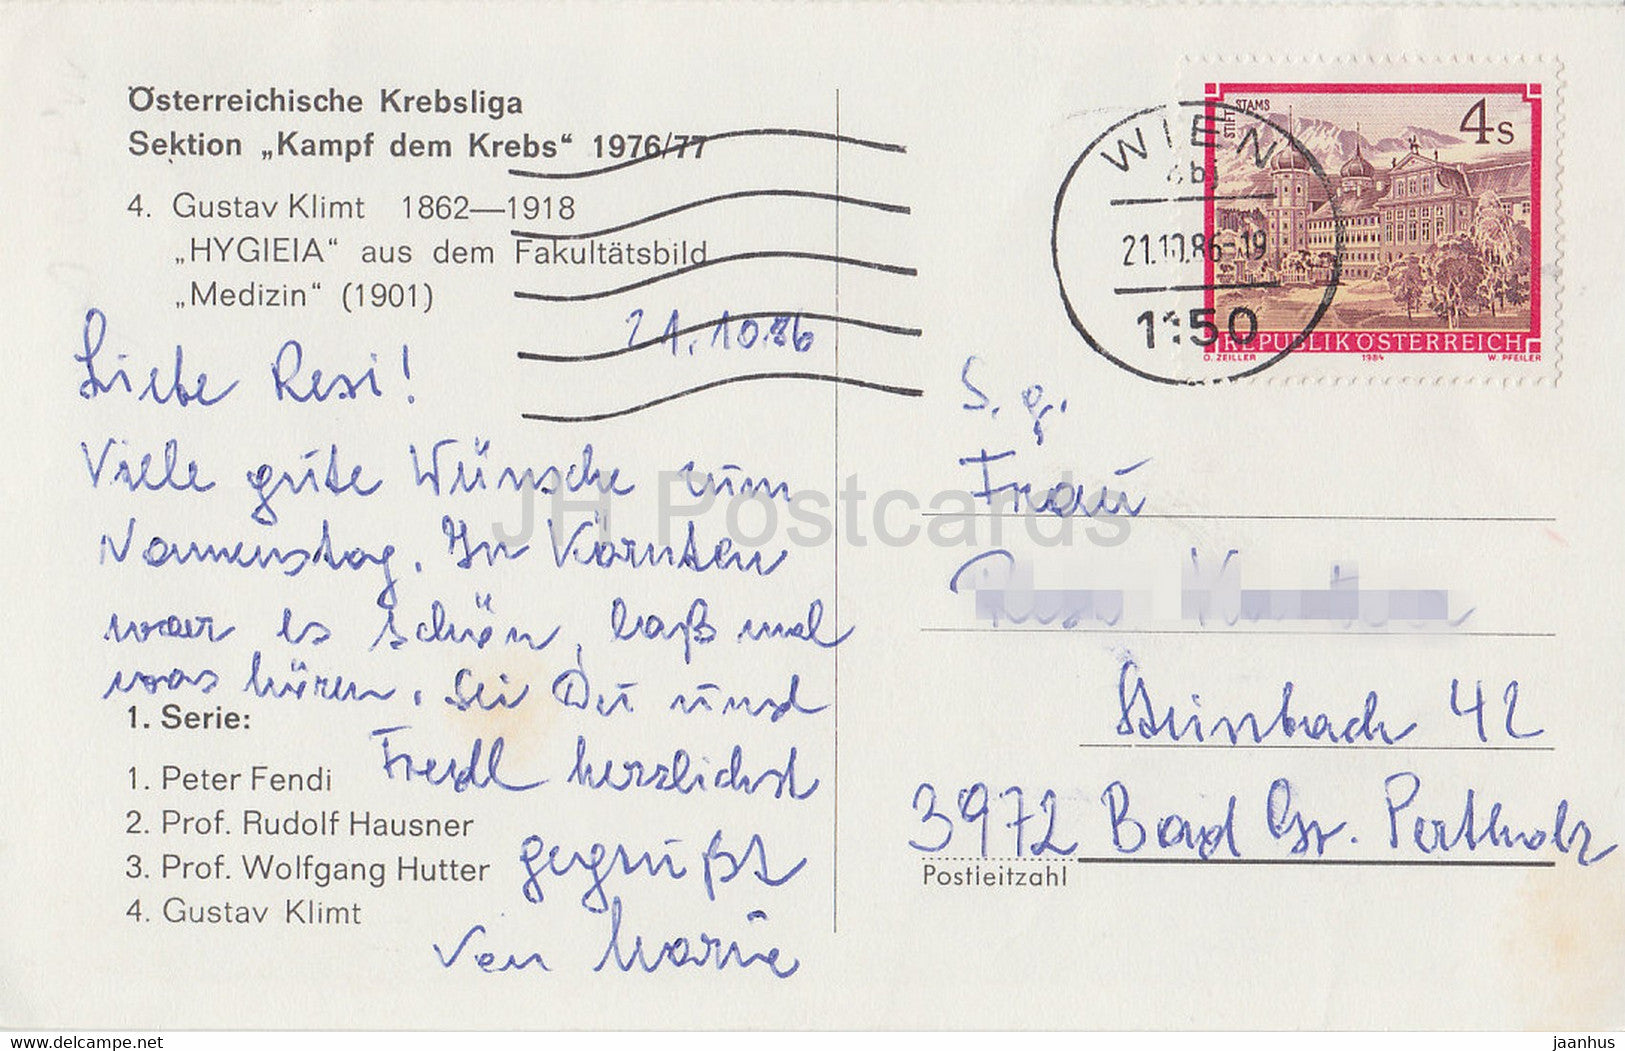 Österreichische Krebsliga
Sektion „Kampf dem Krebs“ 1976/77
4. Gustav Klimt 1862—1918
„HYGIEIA“ aus dem Fakultätsbild
„Medizin“ (1901)
21.10.86
Liebe Resi!
Viele gute Wünsche zum
Namenstag. In Kärnten
war es schön, laß mal
was hören. Sei Du und
Fredl herzlichst
gegrüßt
von Marie
1. Serie:
1. Peter Fendi
2. Prof. Rudolf Hausner
3. Prof. Wolfgang Hutter
4. Gustav Klimt
STIFT STAMS
4s
REPUBLIK ÖSTERREICH
O. ZEILLER 1984 W. PFEILER
WIEN
21.10.86-19
1150
S. g.
Frau
Steinbach 42
3972 Bad Gr. Pertholz
Postleitzahl
JH Postcards
delcampe.net
jaanhus